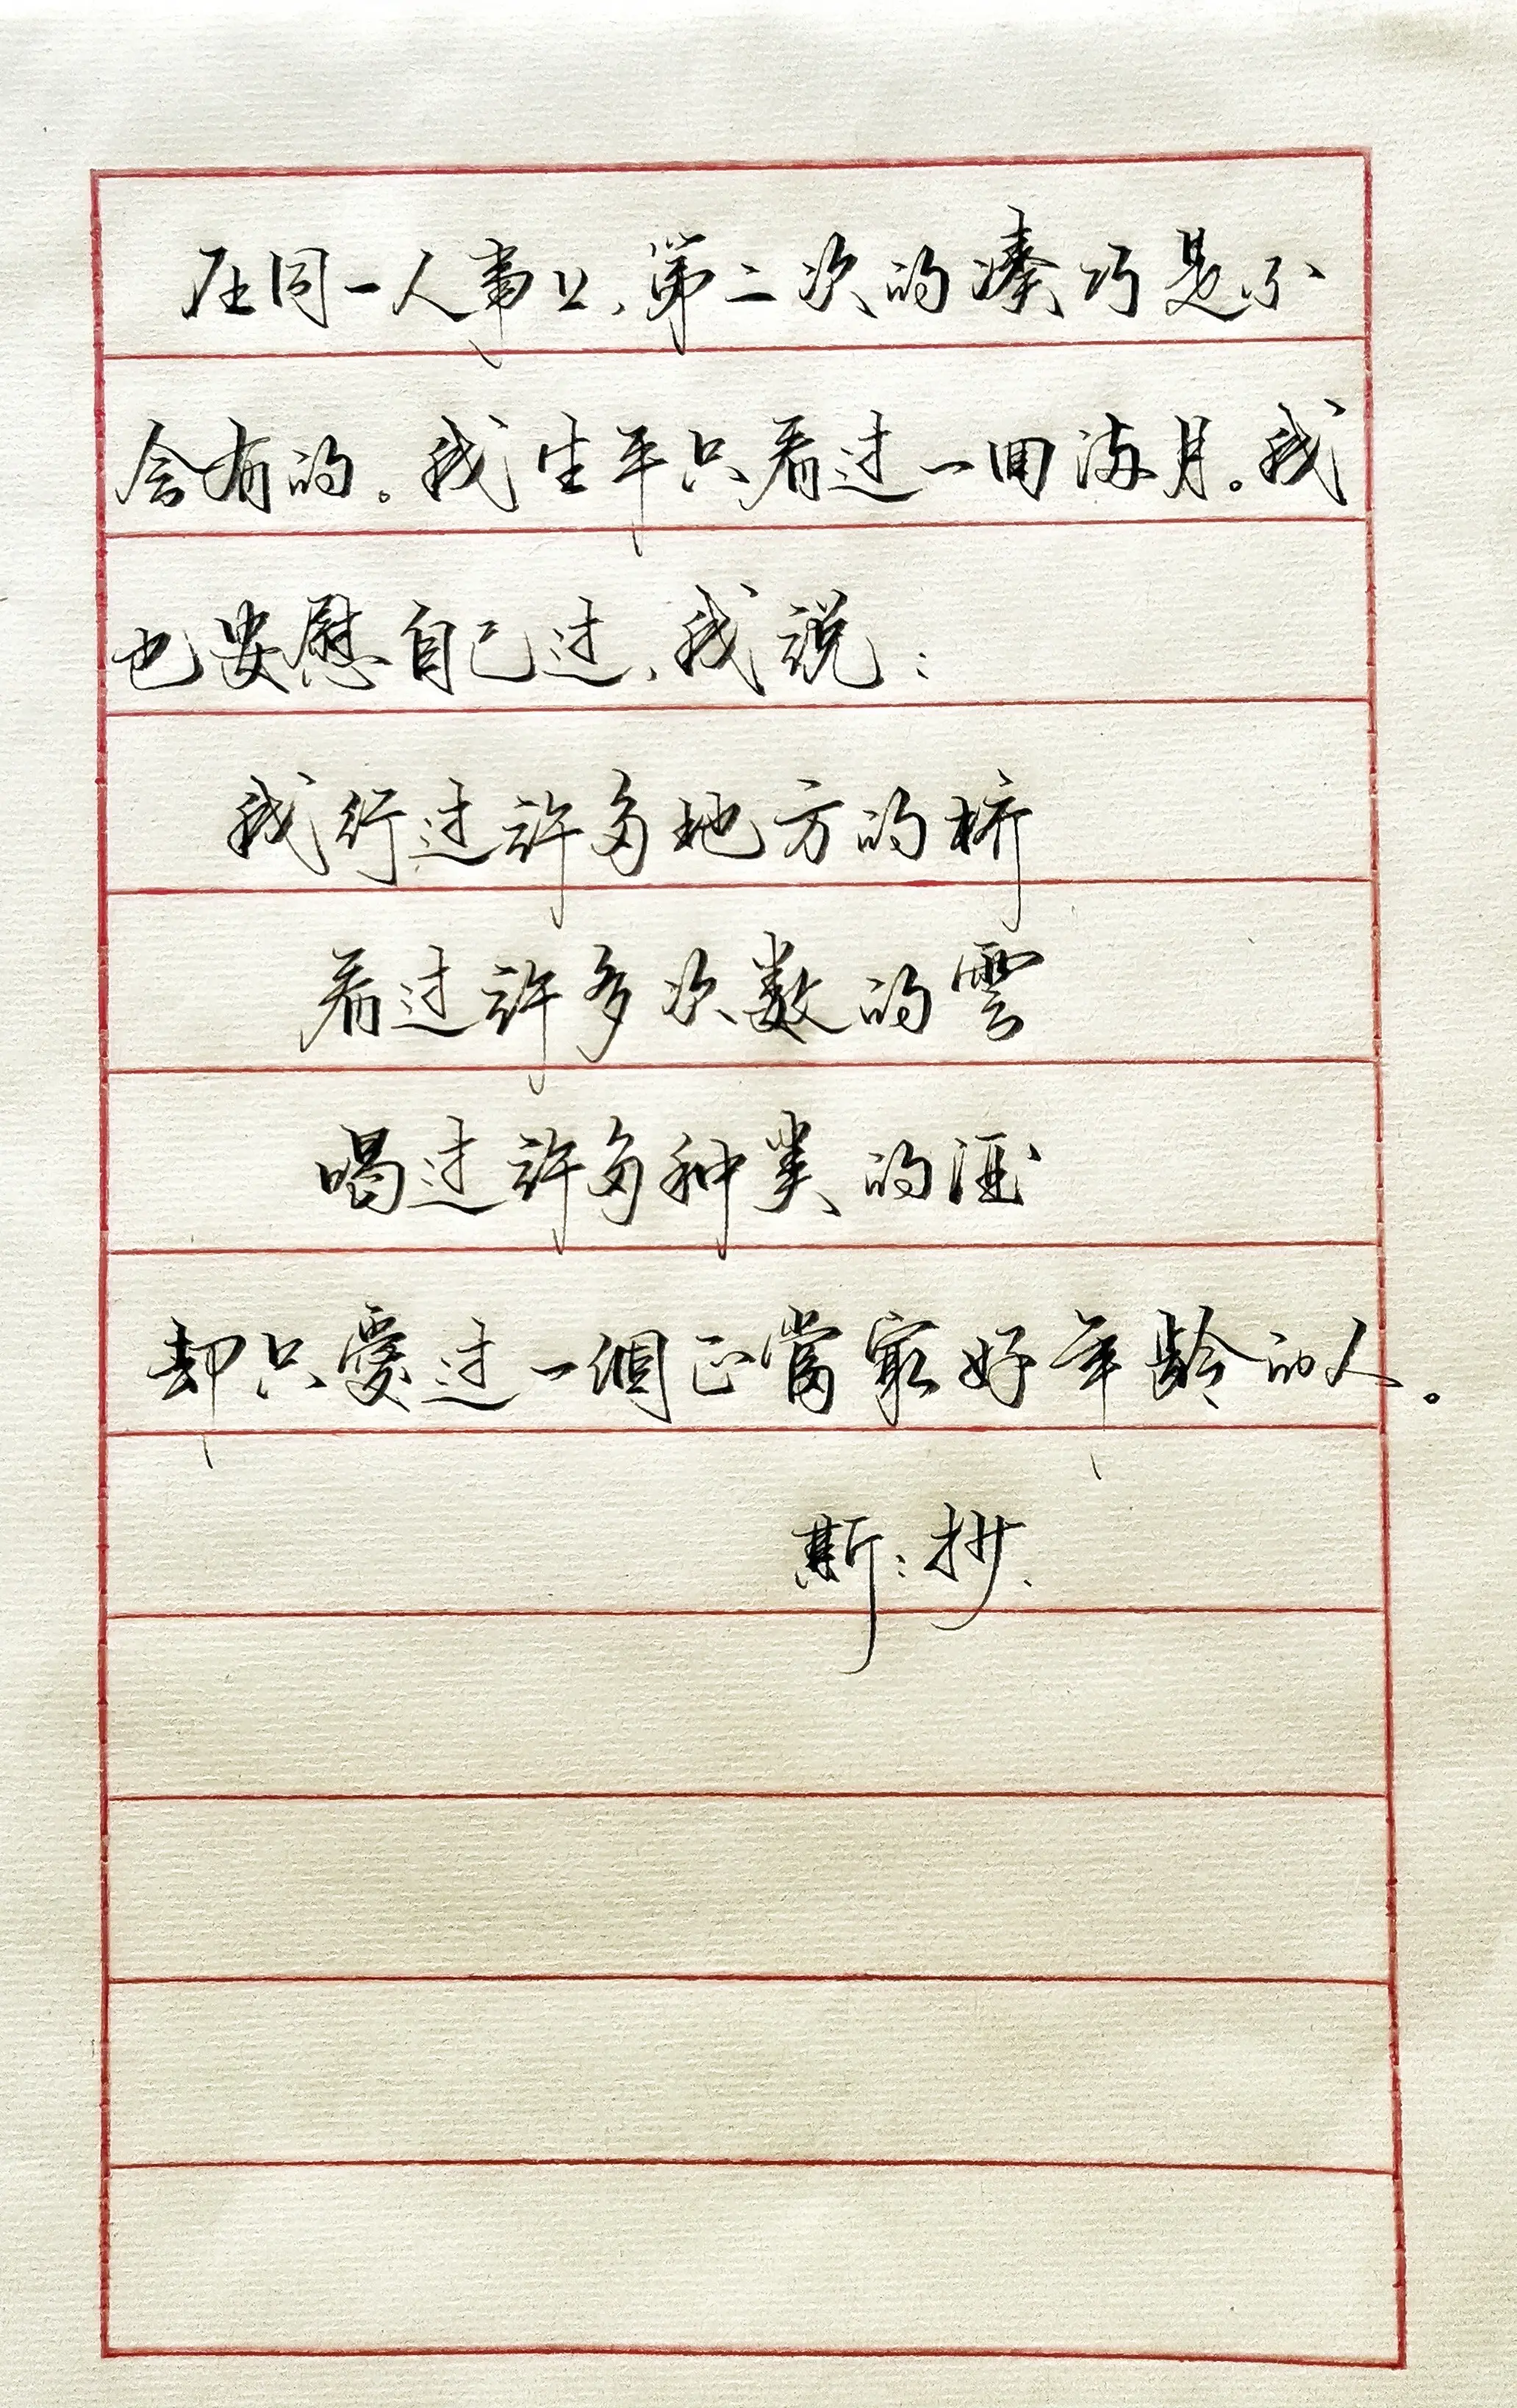 在同一人事上、第二次的凑巧是不
会有的。我生平只看过一回满月。我
也安慰自己过、我说：
我行过许多地方的桥
看过许多次数的雲
喝过许多种类的酒
却只爱过一個正當最好年龄的人。
斯：抄、